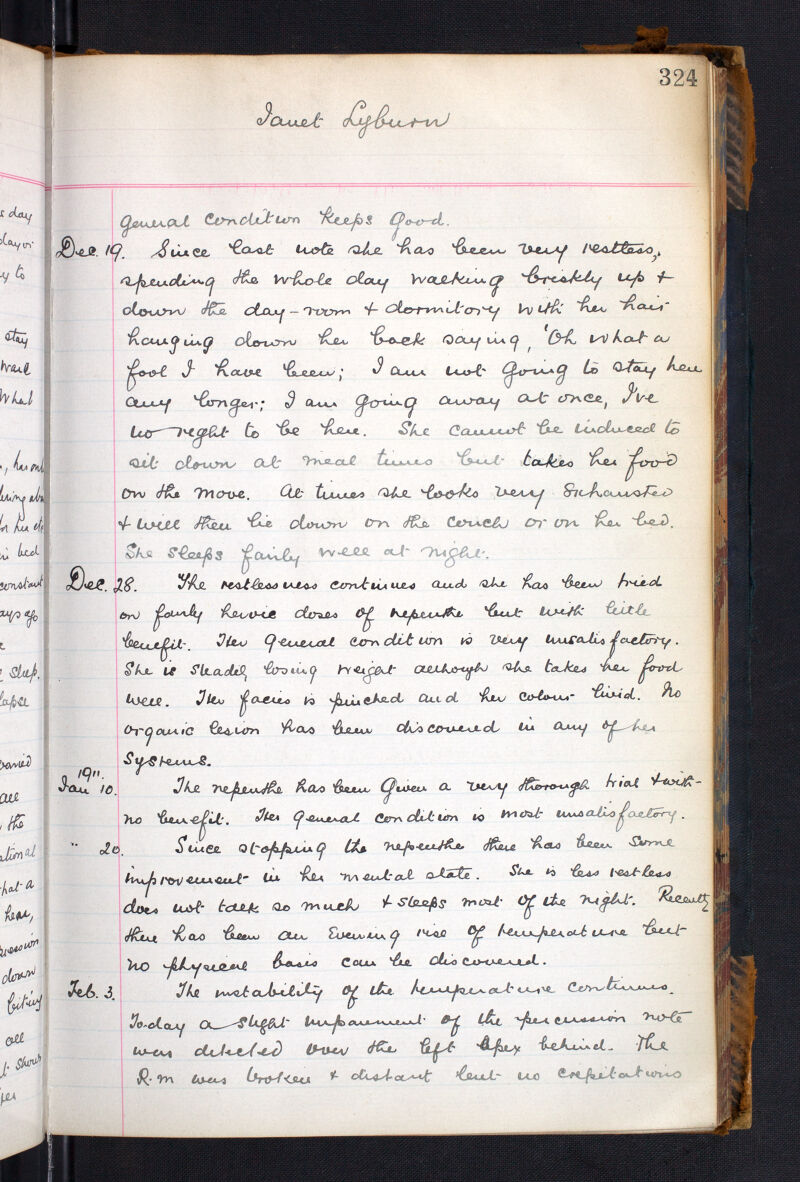 324
Janet Lyburn
general condition keeps good.
Dec. 19. Since last note she has been very restless,
spending the whole day walking briskly up +
down the day-room + dormitory with her hair
hanging down her back saying, 'Oh what a
fool I have been; I am not going to stay here
any longer; I am going away at once, I've
no right to be here. She cannot be induced to
sit down at meal times but takes her food
on the move. At times she looks very exhausted
+ will then lie down on the couch or on her bed.
She sleeps fairly well at night.
Dec. 28. The restlessness continues and she has been tried
on fairly heroic doses of nepenthe but with little
benefit. Her general condition is very unsatisfactory.
She is steadily losing weight although she takes her food
well. Her facies is pinched and her colour livid. No
organic lesion has been discovered in any of her
systems.
1911.
Jan 10. The nepenthe has been given a very thorough trial + with
no benefit. Her general condition is most unsatisfactory.
" 20. Since stopping the nepenthe there has been some
improvement in her mental state. She is less restless
does not talk so much + sleeps most of the night. Recently
there has been an evening rise of temperature but
no physical basis can be discovered.
Feb. 3. The instability of the temperature continues.
To-day a slight impairment of the percussion note
was detected over the left apex behind. The
R.M was broken + distant but no crepitations